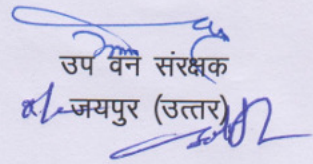 उप वन संरक्षक
जयपुर (उत्तर)